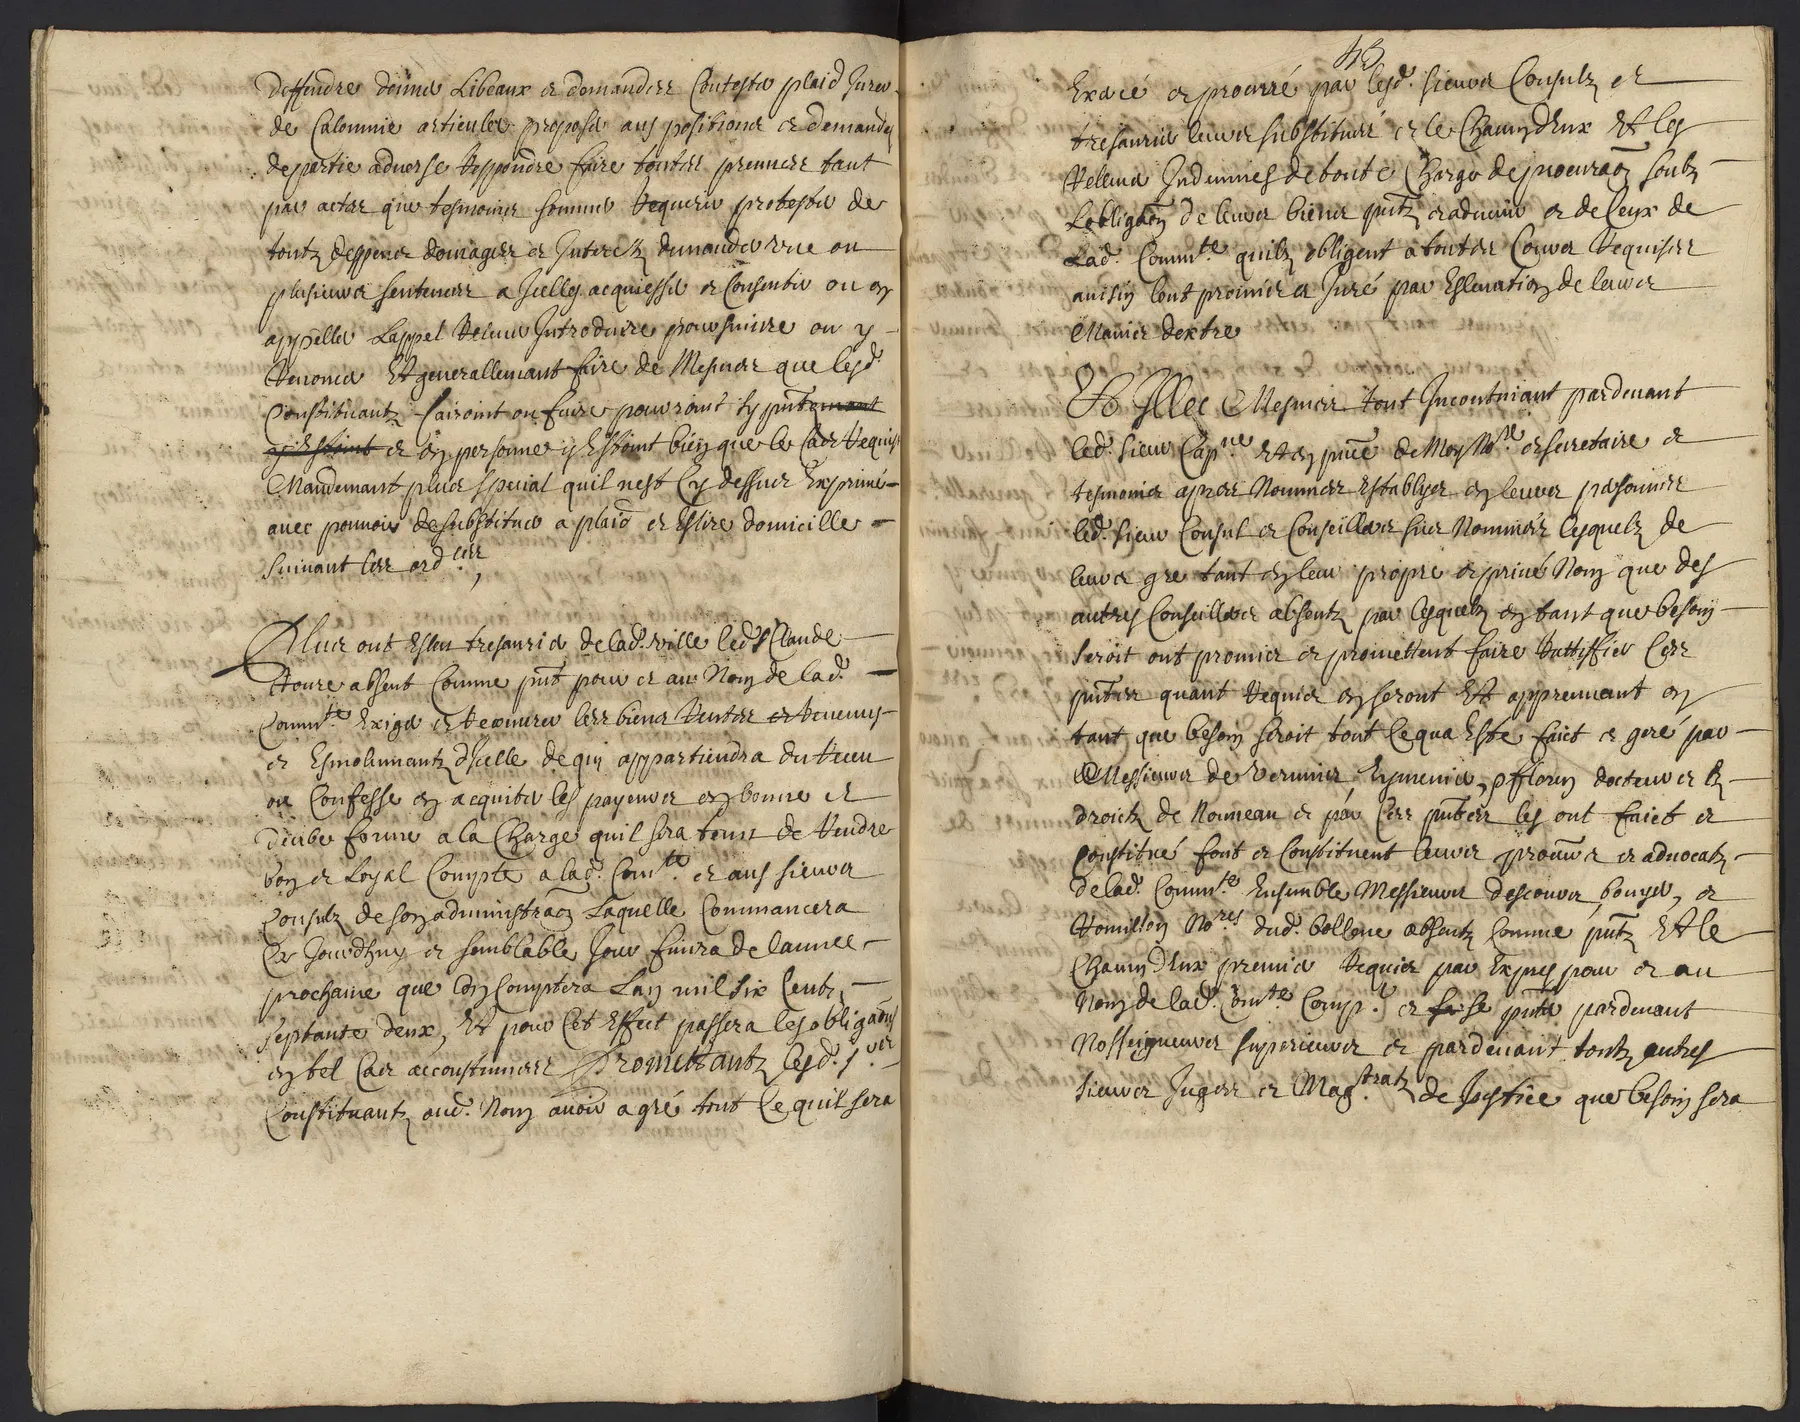 deffendre donner Libeaux et demandes Contester plaid Jurer
de Calomnie articuler proposer aux positions et demandes
de partie adverse Respondre faire toutes preuves tant
par actes que tesmoins sommer Requerir protester de
toutz despens domages et Interestz demander une ou
plusieurs sentences a Icelles acquiesser et Consentir ou en
appeller Lappel Relever Introduire poursuivre ou y
Renoncer Et generallemant faire de Mesmes que lesd.
Constituantz fairoint ou faire pourroint sy pntemant
y Estoint et en personne y Estoint bien que le Cas Requis
Mandemant plus special quil nest Cy dessus Exprimé
avec pouvoir de substituer a plaid et Eslire domicille
Suivant les ord.ces
Plus ont Esleu tresaurier de lad. ville led. s.r Claude
Roure absent Comme pnt pour et au Nom de lad.
Comm.te Exiger et Recouvrer les biens Rentes et Revenus
et Esmolumantz d'Icelle de qui appartiendra du Receu
ou Confesse en acquiter les payeurs en bonne et
deube forme a la Charge quil sera tenu de Rendre
bon et Loyal Compte a lad. Com.te et aus sieurs
Consulz de son administraon Laquelle Commancera
Ce Jourdhuy et semblable Jour finira de lannee
prochaine que lon Comptera Lan mil six Centz
septante deux, Et pour Cet Effect passera les obligaons
en tel Cas accoustumees Promettantz lesd. s.rs
Constituantz aud. Nom avoir a gré tout Ce quil sera
43
Exercé et procuré par lesd. sieurs Consulz et
tresaurier leurs substitués et le Chacun d'Eux Et les
Relever Indemnes de toute Charge de procuraon soubz
Lobligaon de leurs biens pntz et advenir et de Ceux de
Lad. Comm.te quilz obligent a toutes Cours Requises
ainsin lont promis et Juré par Eslevation de leurs
Mains dextre
Et Illec Mesmes tout Incontinant pardevant
led. sieur Cap.ne et en pnce de Moy No.re et secretaire et
tesmoins apres Nommes Establys en leurs personnes
led. sieur Consul et Conseillers sus Nommés lesquelz de
leurs gre tant en leur propre et privé Nom que des
autres Conseillers absentz par lesquelz en tant que besoin
seroit ont promis et promettent faire Rattiffier Ces
pntes quant Requis en seront Et apprennent en
tant que besoin seroit tout Ce qua Este faict et geré par
Messieurs de docteurs Ez
droictz de Nouveau et par Ces pntes les ont faict et
Constitué font et Constituent leurs procureurs et advocatz
de lad. Comm.te Ensemble Messieurs descours, bouyer, et
Romillon No.res dud. bollene absentz Comme pntz Et le
Chacun d'Eux premier Requis par Expres pour et au
Nom de lad. Com.te Comp.r et se pnter pardevant
Nosseigneurs superieurs et pardevant toutz autres
sieurs Juges et Mag.stratz de Justice que besoin sera